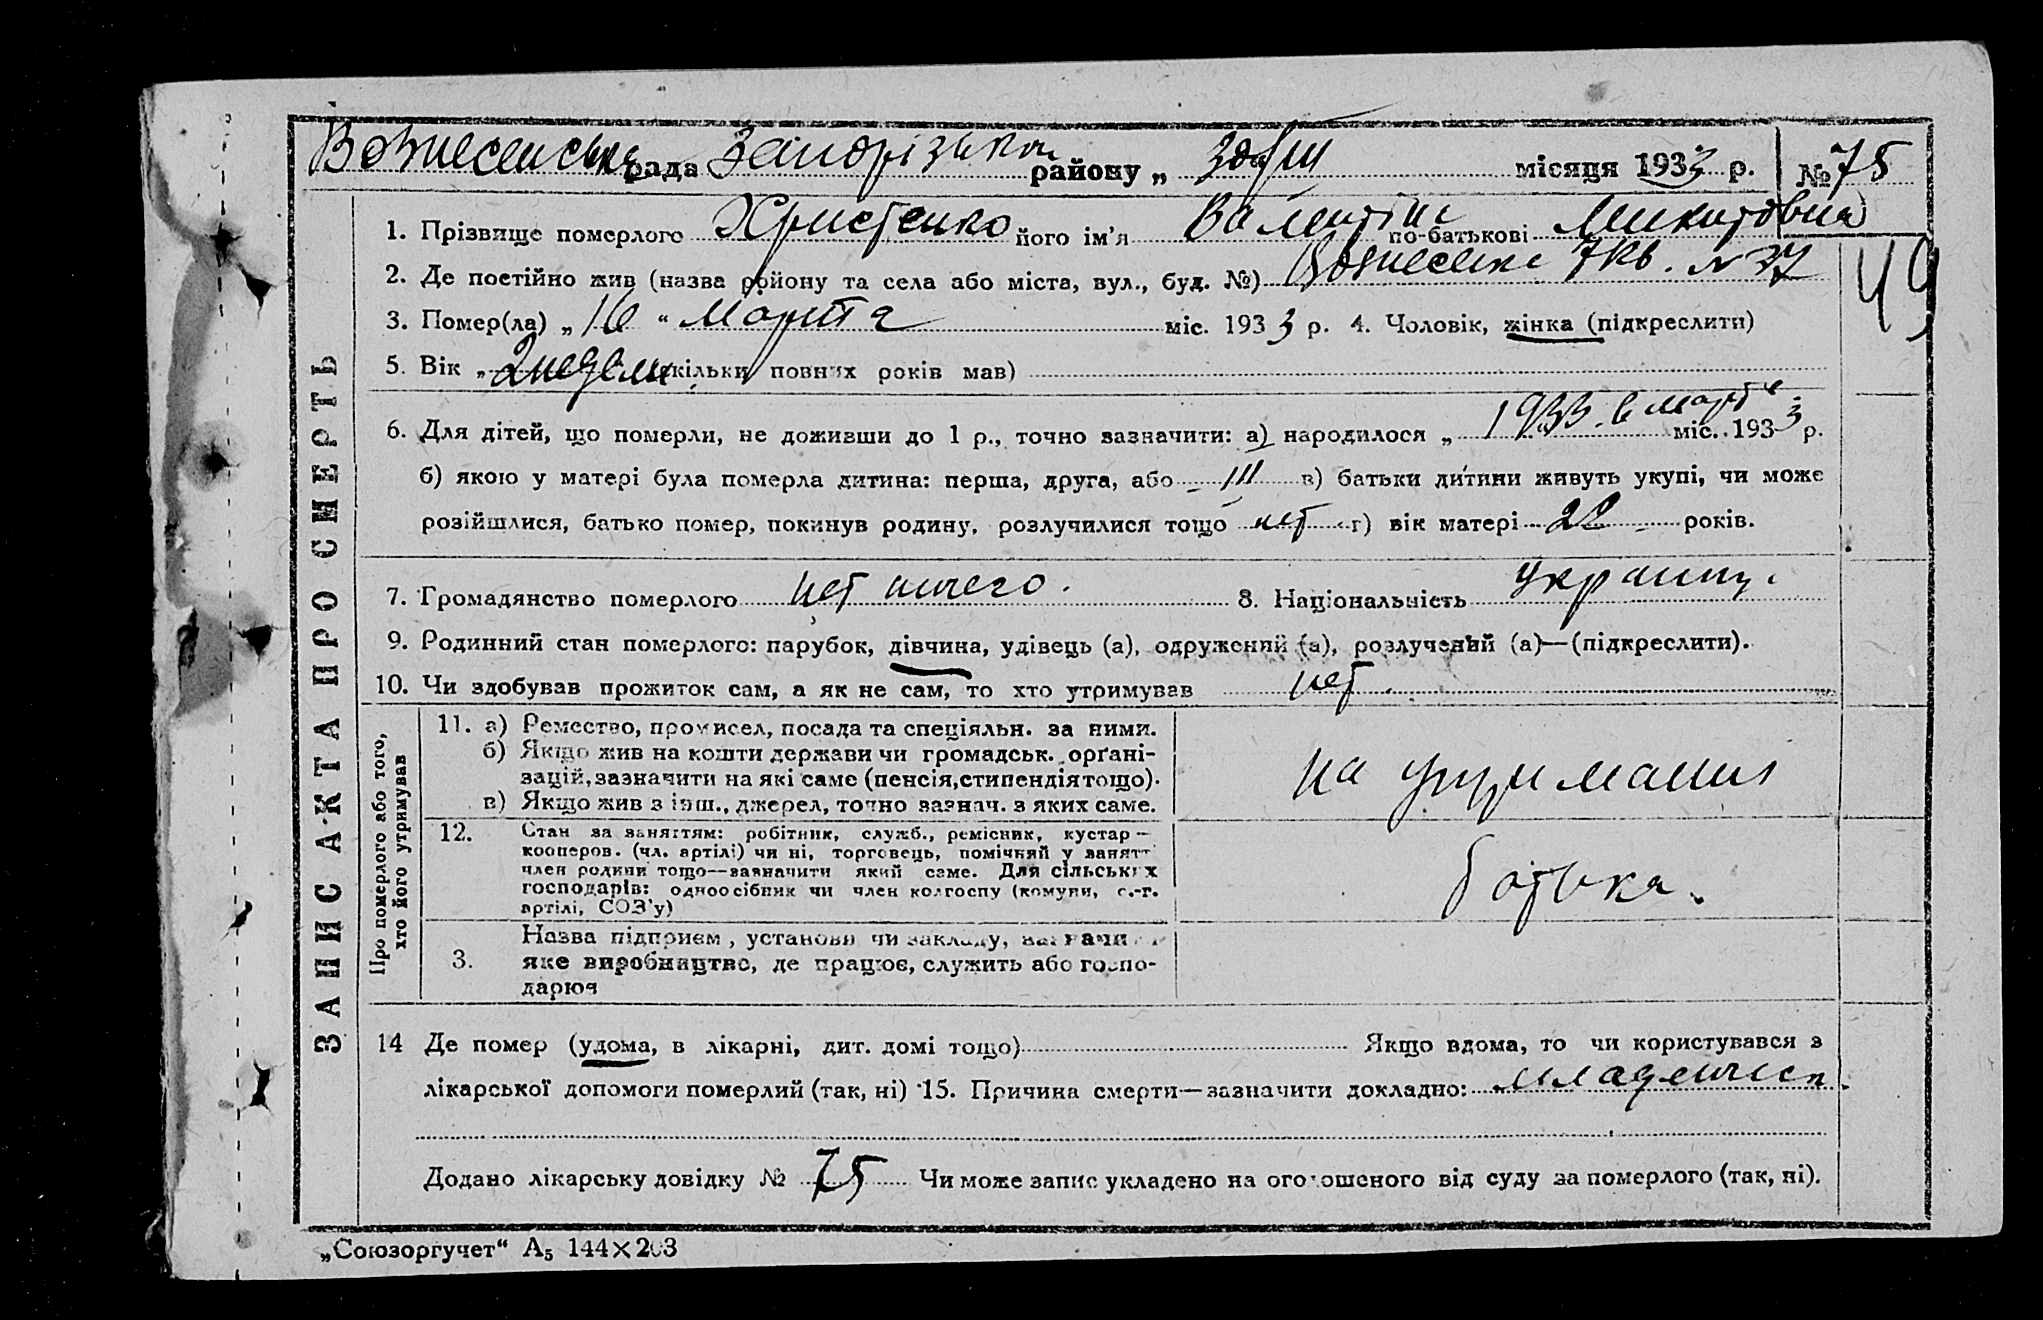 Вознесенська рада Запорізького району „ 30/III місяця 1933 р. № 75
1. Прізвище померлого Христенко його ім'я Валентіна по-батькові Микитовна
2. Де постійно жив (назва району та села або міста, вул., буд. №) Вознесенка 7 кв. № 37
49
3. Помер(ла) „ 16 “ Марта міс. 1933 р. 4. Чоловік, жінка (підкреслити)
5. Вік „ 2 недели скільки повних років мав)
6. Для дітей, що померли, не доживши до 1 р., точно зазначити: а) народилося „ 1933. в марте міс. 1933 р.
б) якою у матері була померла дитина: перша, друга, або III в) батьки дитини живуть укупі, чи може
розійшлися, батько помер, покинув родину, розлучилися тощо нет г) вік матері 22 років.
7. Громадянство померлого нет ничего. 8. Національність украинц.
9. Родинний стан померлого: парубок, дівчина, удівець (а), одружений (а), розлучений (а)—(підкреслити).
10. Чи здобував прожиток сам, а як не сам, то хто утримував нет.
ЗАПИС АКТА ПРО СМЕРТЬ
Про померлого або того,
хто його утримував
11. а) Ремество, промисел, посада та спеціяльн. за ними.
б) Якщо жив на кошти держави чи громадськ. орґані-
зацій, зазначити на які саме (пенсія, стипендія тощо).
в) Якщо жив з інш., джерел, точно зазнач. з яких саме.
на удримания
12. Стан за заняттям: робітник, служб., ремісник, кустар—
кооперов. (чл. артілі) чи ні, торговець, помічний у занятт
член родини тощо—зазначити який саме. Для сільських
господарів: одноосібник чи член колгоспу (комуни, с.-г.
артілі, СОЗ'у)
батька.
3. Назва підприєм, установи чи закладу,
яке виробництво, де працює, служить або госпо-
дарює
14 Де помер (удома, в лікарні, дит. домі тощо) Якщо вдома, то чи користувався з
лікарської допомоги померлий (так, ні) 15. Причина смерти—зазначити докладно: младенческ.
Додано лікарську довідку № 75 Чи може запис укладено на оголошеного від суду за померлого (так, ні).
„Союзоргучет“ А5 144×203